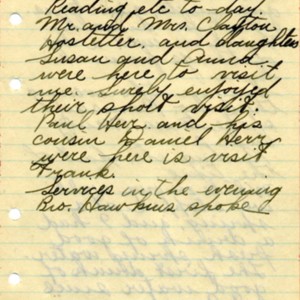 Reading etc to-day.
Mr. and Mrs. Clayton
Hostetter, and daughters
Susan and Anna
were here to visit
me. Surely enjoyed
their short visit.
Paul Herr, and his
cousin Daniel Herr
were here is visit
Frank.
Services in the evening
Bro. Hawkins spoke